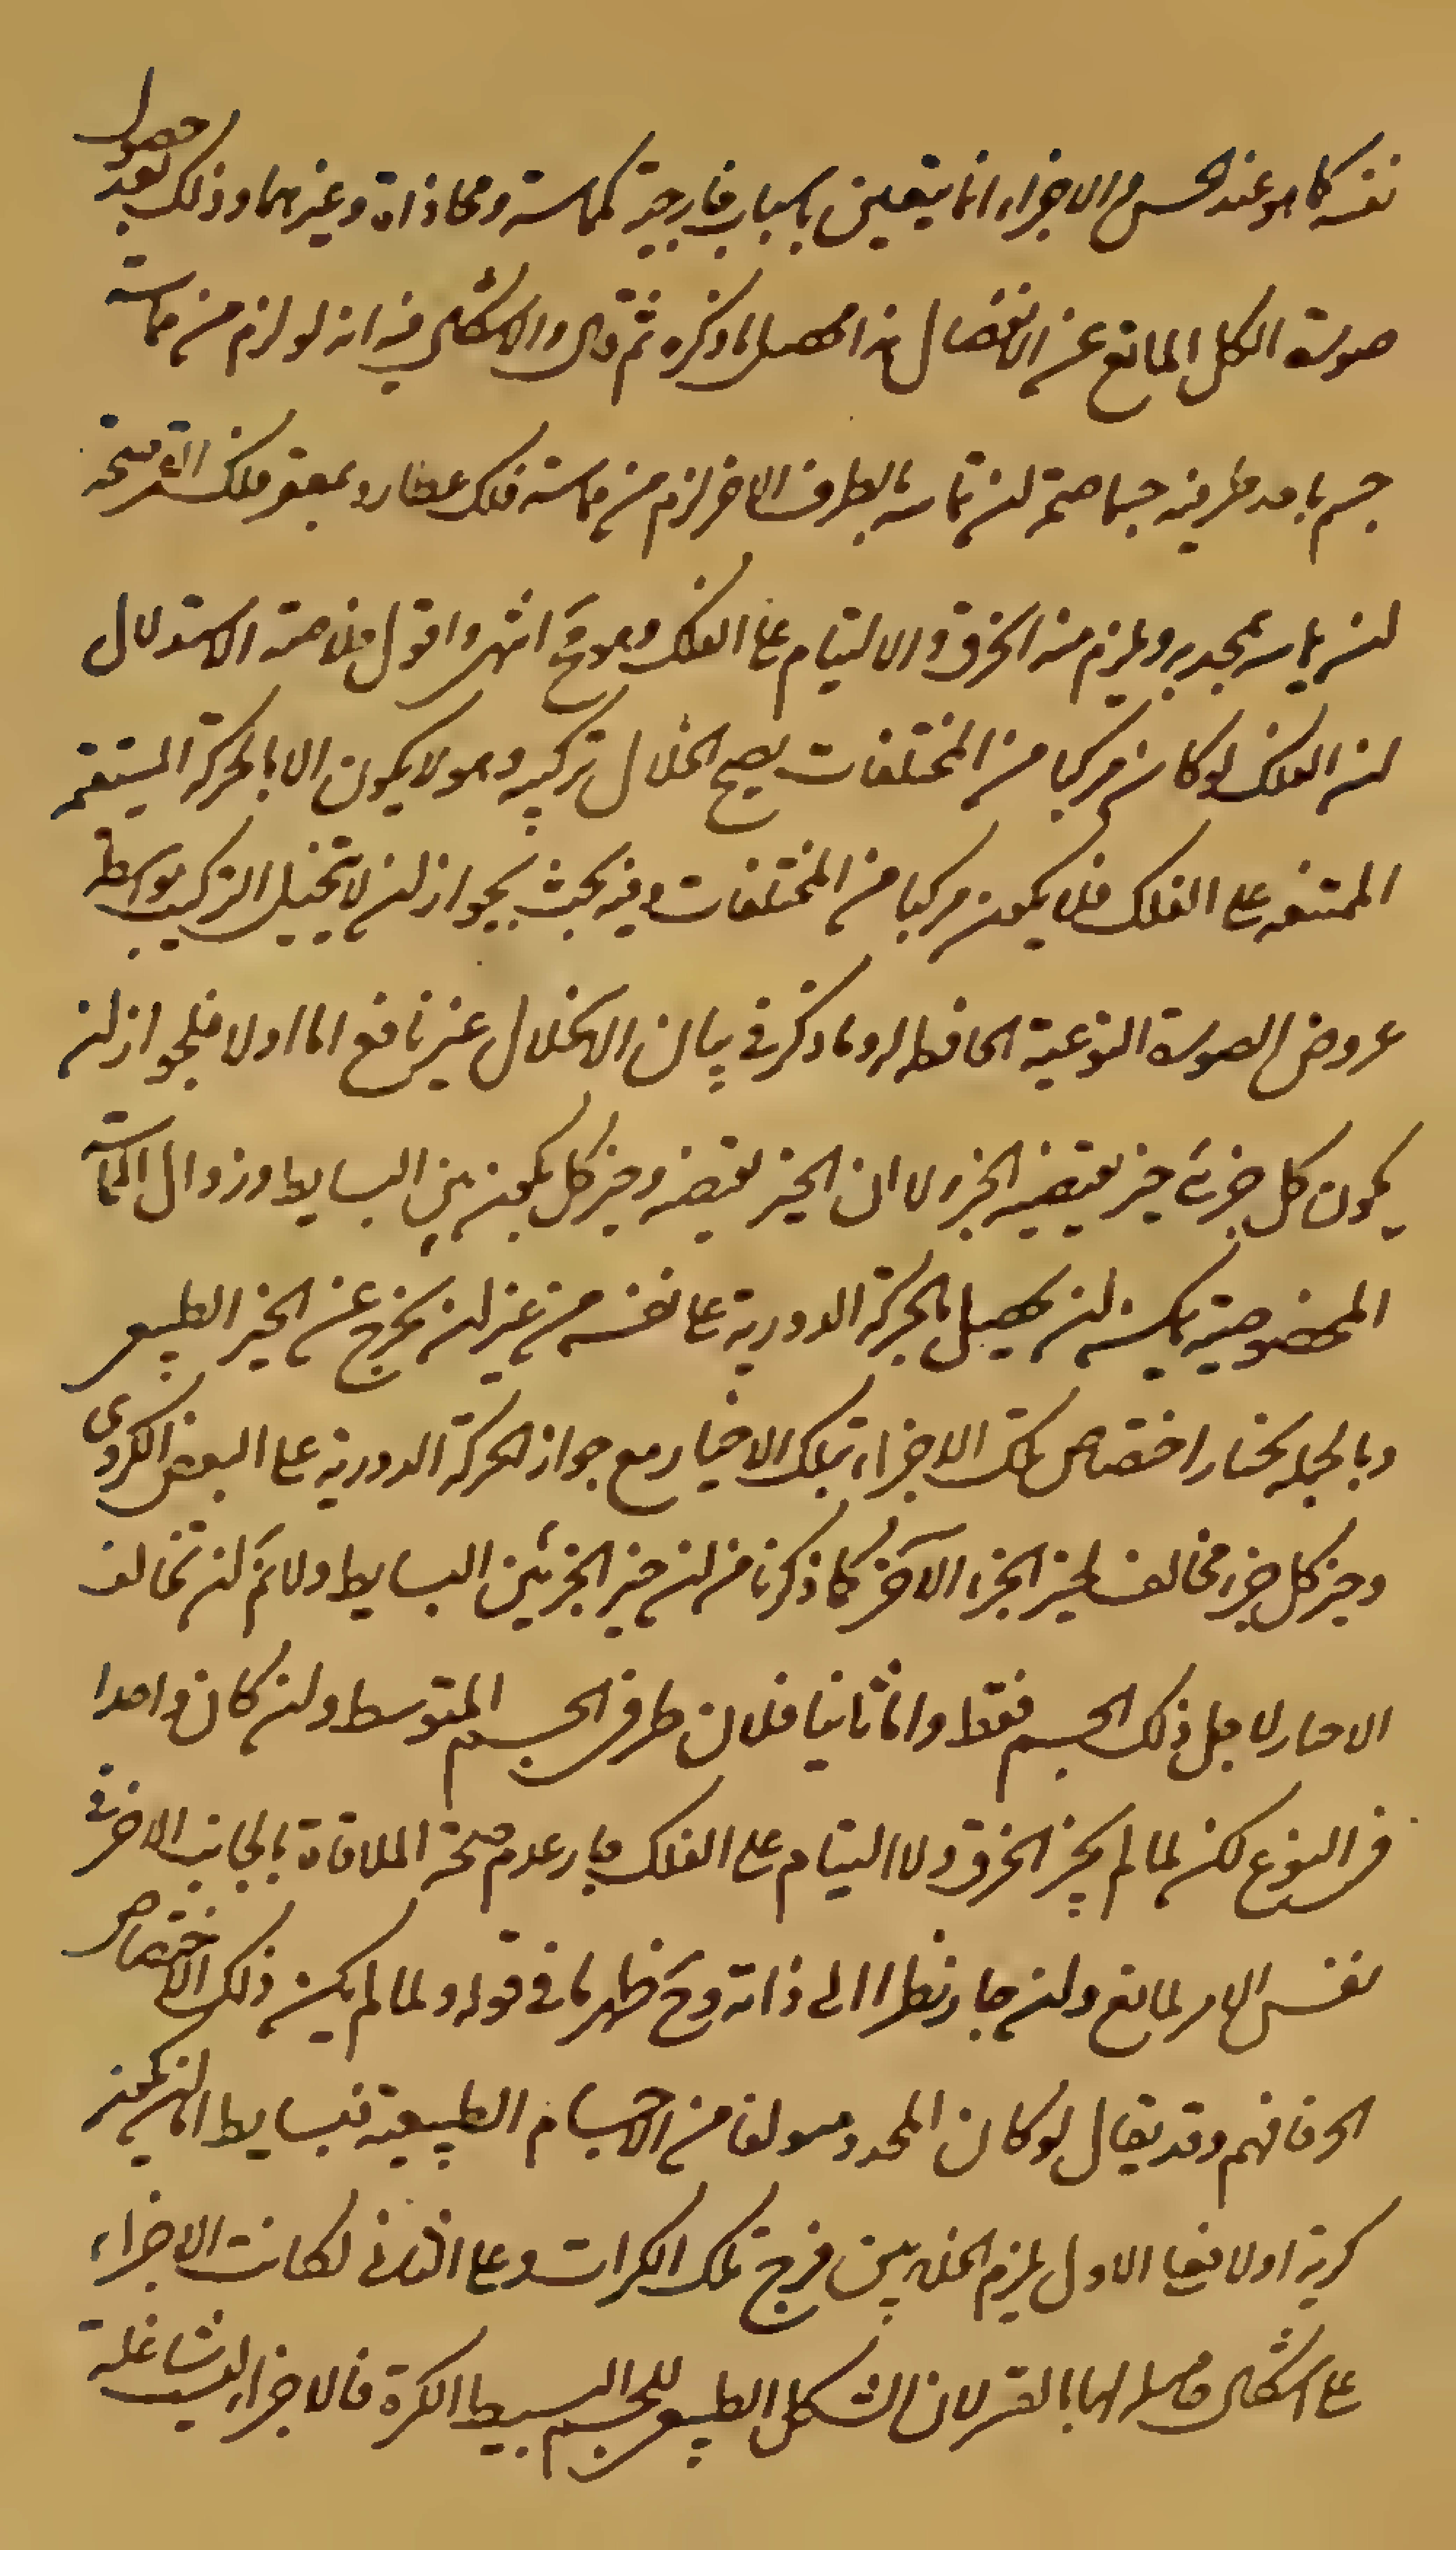 نفسه كما هو عند الحس والاجزاء انما يتعين باسباب خارجية كمماسة ومحاذاة وغيرهما وذلك بعد حصول
صورة الكل المانع عن الانفصال هذا محصل ما ذكره ثم قال والاشكال فيه انه لو لزم من مماسة
جسم باحد طرفيه جسما صحة لن تماسه بالطرف الاخر لزم من مماسة فلك عطارد بمقعر فلك القمر صحة
لن يماسه بمحدبه ويلزم منه الخرق والالتيام على الفلك وهو مح انتهى واقول خلاصة الاستدلال
لن الفلك لو كان مركبا من المختلفات يصح انحلال تركيبه وهو لا يكون الا بالحركة المستقيمة
الممتنعة على الفلك فلا يكون مركبا من المختلفات وفيه بحث بجواز لن لا ينحل التركيب بواسطة
عروض الصورة النوعية الحافظة له وما ذكر في بيان الانحلال غير نافع اما اولا فلجواز لن
يكون كل جزء حيز يقتضيه الجزء لا ان الحيز يقتضيه وحيز كل يكون بين البسايط وزوال المماسة
المخصوصة يمكن لن يحصل بالحركة الدورية على نفسه من غير لن يخرج عن الحيز الطبيعي
وبالجملة نختار اختصاص تلك الاجزاء بتلك الاحياز مع جواز الحركة الدورية على البعض الكروى
وحيز كل جزء مخالف لحيز الجزء الآخر كما ذكرنا من لن حيز الجزئين البسايط ولا نم لن تخالف
الاحياز لاجل ذلك الجسم فقط واما ثانيا فلان طرفي الجسم المتوسط ولن كان واحدا
في النوع لكن لما لم يجز الخرق والالتيام على الفلك جاز عدم صحة الملاقاة بالجانب الاخر في
نفس الامر لمانع ولن جاز نظرا الى ذاته وح ظهر ما في قوله ولما لم يكن ذلك الاختصاص
الخ فافهم وقد يقال لو كان المحدد مولفا من الاجسام الطبيعية فبسايطه اما لن يكون
كرية اولا فعلى الاول يلزم الخلاء بين فرج تلك الكرات وعلى الثاني لكانت الاجزاء
على اشكال حاصلة لها بالقسر لان الشكل الطبيعي للجسم البسيط الكرة فالاجزاء ليست شاغلة